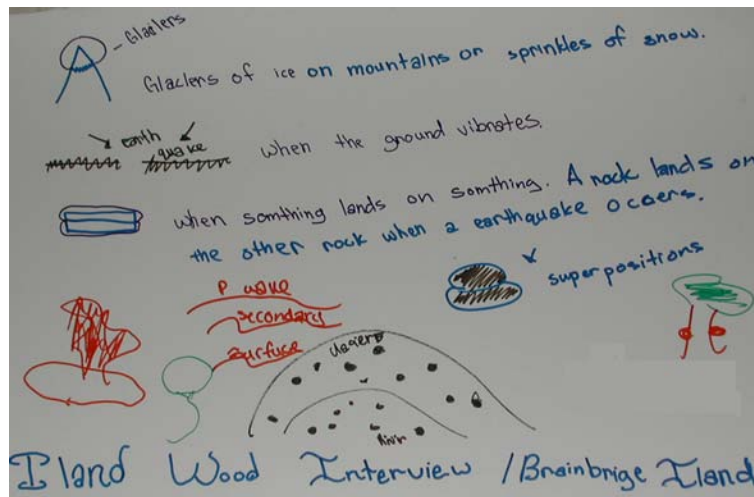 Glaciers
Glaciers of ice on mountains or sprinkles of snow.
earth
quake
when the ground vibrates.
when somthing lands on somthing. A rock lands on
the other rock when a earthquake occers.
superpositions
P wave
secondary
surfuse
River
Iland Wood Interview / Brainbrige Iland